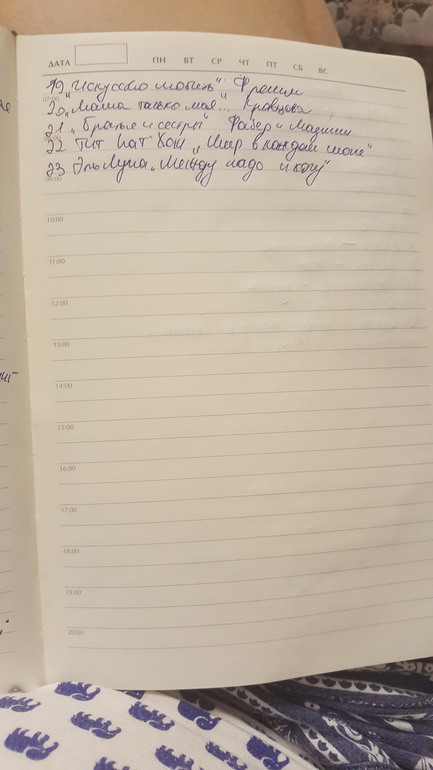 ДАТА ПН ВТ СР ЧТ ПТ СБ ВС
19 "Искусство любить" Фромм
20 "Мама только моя..." Кравцова
21 "Братья и сестры" Фабер и Мазлиш
22 Тит Нат Хан "Мир в каждом шаге"
23 Эль Луна "Между надо и хочу"
09:00
10:00
11:00
12:00
13:00
14:00
15:00
16:00
17:00
18:00
19:00
20:00